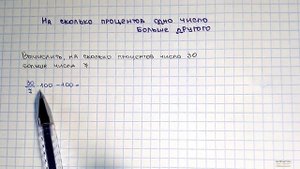 На сколько процентов одно число
больше другого
Вычислить, на сколько процентов число 30
больше числа 7
30/7 · 100 - 100 =